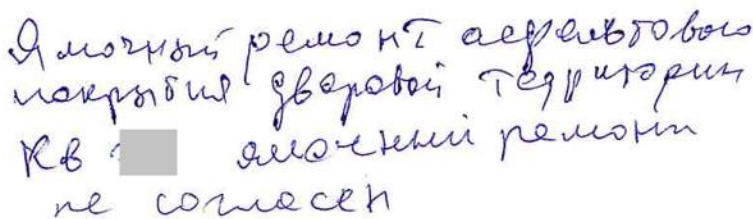 Ямочный ремонт асфальтового
покрытия дваровой территории
Кв ямочный ремонт
не согласен